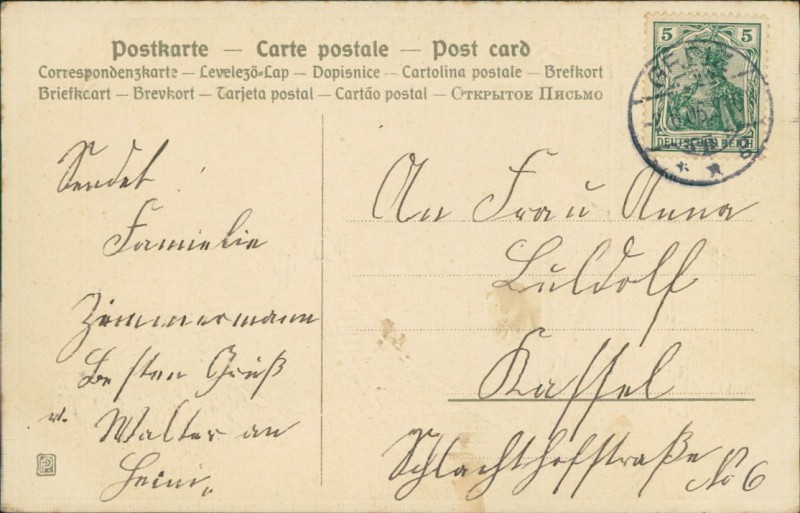 Postkarte — Carte postale — Post card
Correspondenzkarte — Levelezö-Lap — Dopisnice — Cartolina postale — Brefkort
Briefkaart — Brevkort — Tarjeta postal — Cartão postal — Открытое Письмо
5 5
DEUTSCHES REICH
Sendet
Familie
Zimmermann
Besten Gruß
v. Walter an
Heini
An Frau Anna
Luldolf
Kassel
Schlachthofstraße
No 6